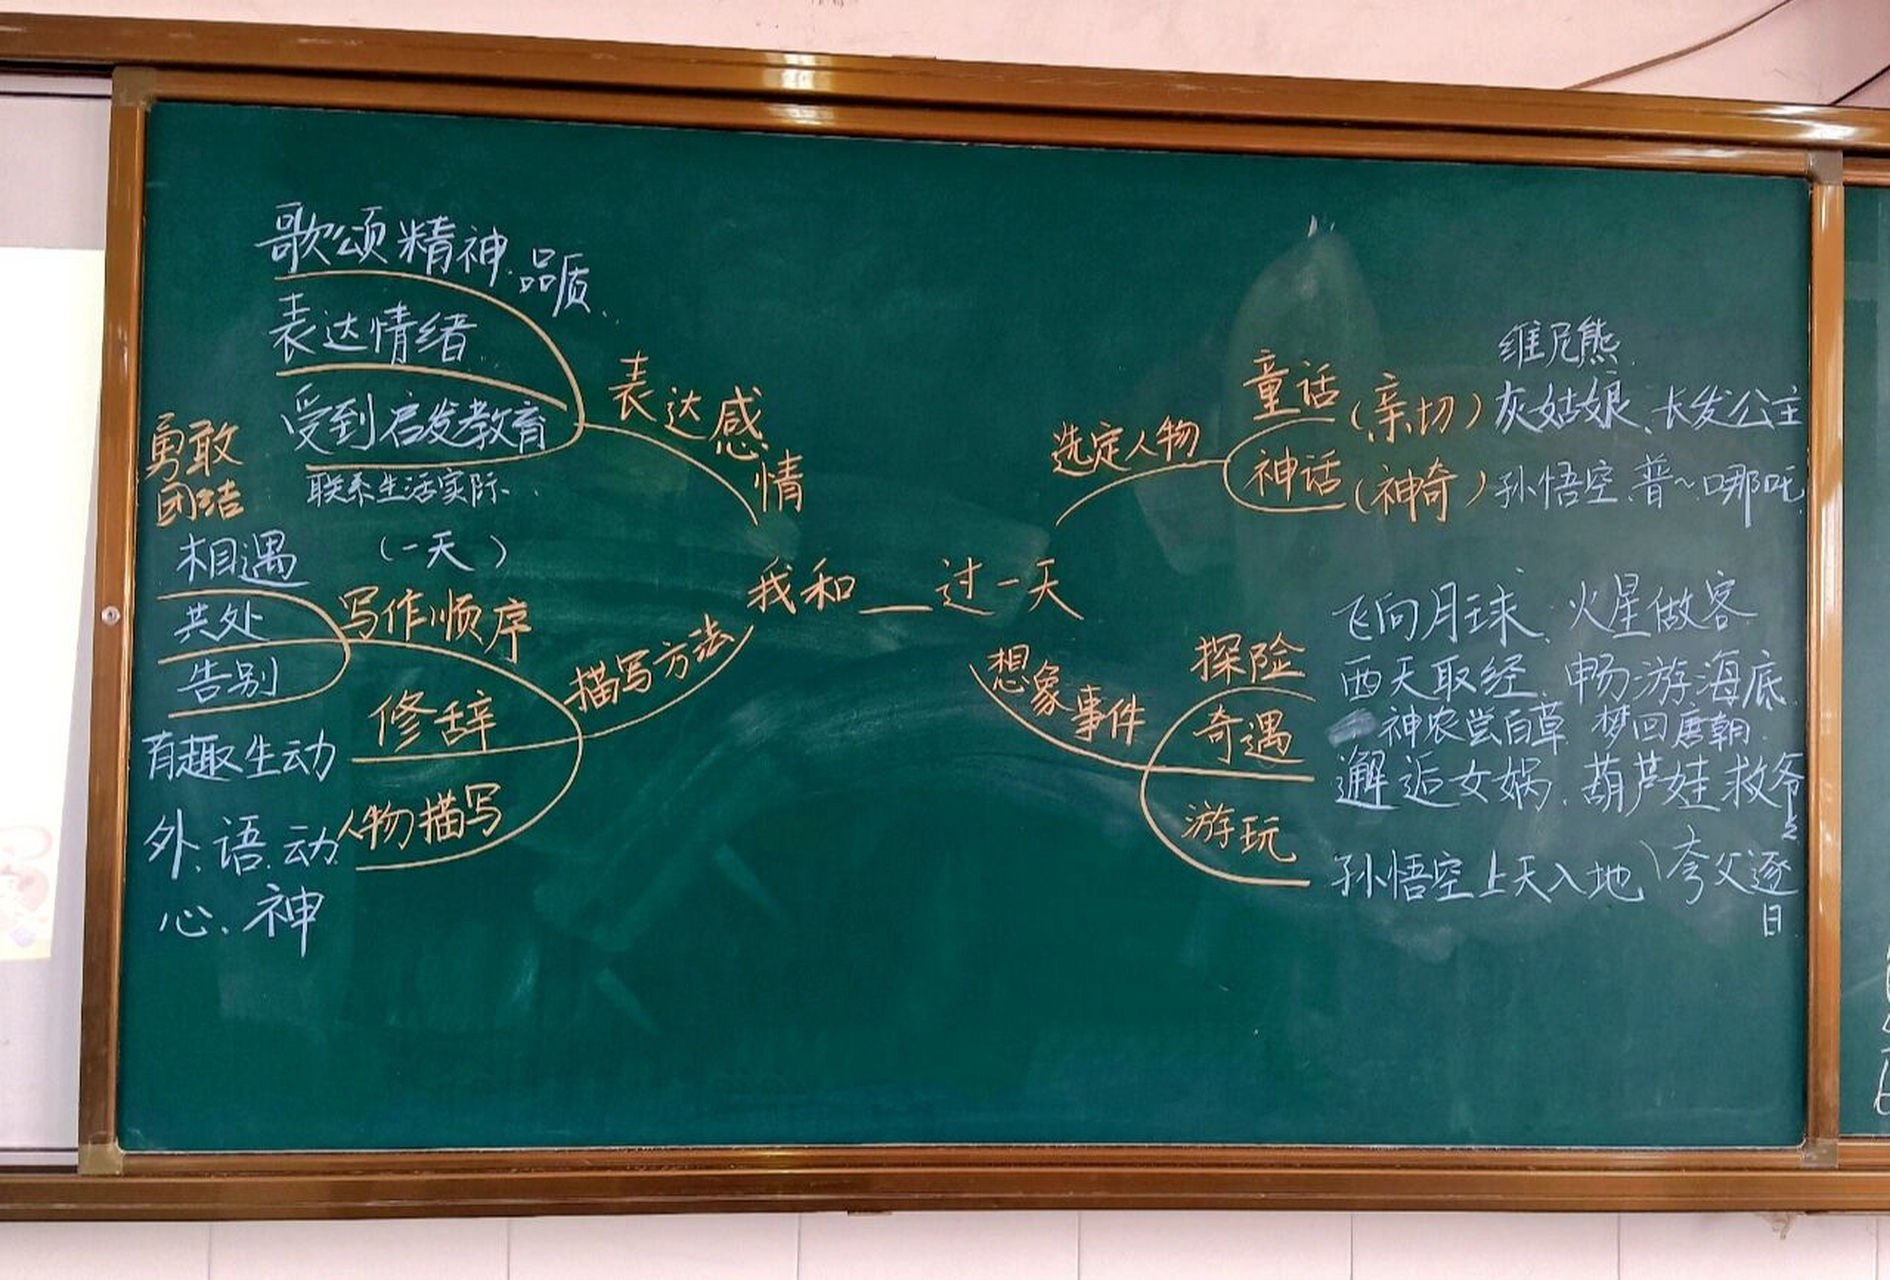 歌颂精神、品质
表达情绪
受到启发教育
联系生活实际
勇敢
团结
表达感情
相遇
(一天)
共处
告别
写作顺序
修辞
有趣生动
人物描写
外、语、动
心、神
描写方法
我和__过一天
选定人物
童话(亲切)
维尼熊
灰姑娘、长发公主
神话(神奇)孙悟空、普~哪吒
想象事件
探险
奇遇
游玩
飞向月球、火星做客
西天取经、畅游海底
神农尝百草 梦回唐朝
邂逅女娲、葫芦娃救爷爷
孙悟空上天入地、夸父逐日